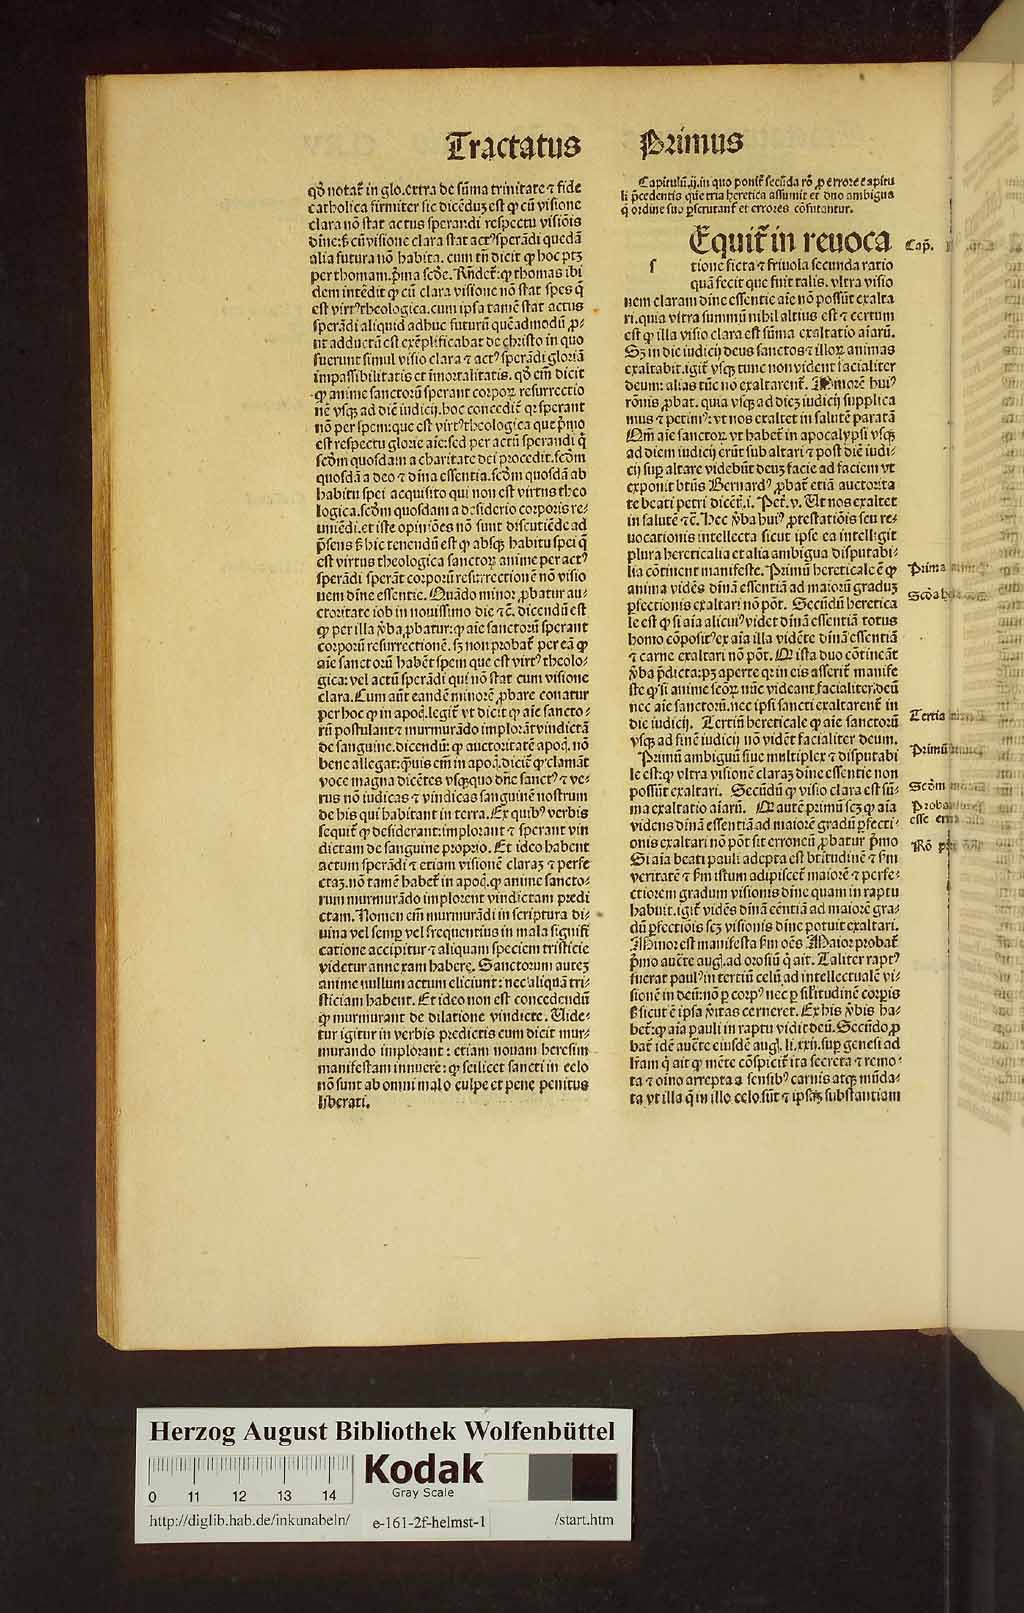 Tractatus Primus
qđ notat̃ in glo.extra de sũma trinitate ⁊ fide
catholica firmiter sic dicẽduȝ est ꝙ cũ visione
clara nõ stat actus sperandi respectu visiõis
dĩne:ß cũ visione clara stat actꝰ sperãdi quedã
alia futura nõ habita. cum tñ dicit ꝙ hoc ptȝ
per thomam.p̃ma scðe. Rñdet̃:ꝙ thomas ibi
dem intẽdit ꝙ cũ clara visione nõ stat spes q̃
est virtꝰ theologica.cum ipsa tamẽ stat actus
sperãdi aliquid adhuc futurũ quẽadmodũ ꝓ⸗
ut adductũ est exẽplificabat de christo in quo
fuerunt simul visio clara ⁊ actꝰ sperãdi gloriã
impassibilitatis et ĩmortalitatis. qđ em̃ dicit
ꝙ anime sanctorũ sperant corporꝝ resurrectio
nẽ vsqꝫ ad diẽ iudicij.hoc concediẽ qꝛ sperant
nõ per spem:que est virtꝰ theologica que p̃mo
est respectu glorie aĩe:sed per actũ sperandi q̃
scðm quosdam a charitate dei procedit.scðm
quosdã a deo ⁊ dĩna essentia.scðm quosdã ab
habitu spei acquisito qui non est virtus theo
logica.scðm quosdam a desiderio corporis re⸗
uniẽdi.et iste opiniões nõ sunt discutiẽde ad
p̃sens ß hic tenendũ est ꝙ absqꝫ habitu spei q̃
est virtus theologica sanctorꝝ anime per actꝰ
sperãdi sperãt corporũ resurrectionẽ nõ visio
nem dĩne essentie. Quãdo minor ꝓbatur au⸗
ctoritate iob in nouissimo die ⁊c̃. dicendũ est
ꝙ per illa v̓ba ꝓbatur:ꝙ aĩe sanctorũ sperant
corporũ resurrectionẽ. sȝ non probat̃ per eã ꝙ
aĩe sanctorũ habẽt spem que est virtꝰ theolo⸗
gica: vel actũ sperãdi qui nõ stat cum visione
clara. Cum aũt eandẽ minorẽ ꝓbare conatur
per hoc ꝙ in apoc̃.legit̃ vt dicit ꝙ aĩe sancto⸗
rũ postulant ⁊ murmurãdo implorãt vindictã
de sanguine.dicendũ: ꝙ auctoritatẽ apoc̃. nõ
bene allegat:qm̃uis em̃ in apoc̃.diciẽ ꝙ clamãt
voce magna dicẽtes vsqꝫquo dñe sanctꝰ ⁊ ve⸗
rus nõ iudicas ⁊ vindicas sanguinẽ nostrum
de his qui habitant in terra. Ex quibꝰ verbis
sequit̃ ꝙ desiderant:implorant ⁊ sperant vin
dictam de sanguine proprio. Et ideo habent
actum sperãdi ⁊ etiam visionẽ claraȝ ⁊ perfe
ctaȝ.nõ tamẽ habet̃ in apoc̃.ꝙ anime sancto⸗
rum murmurãdo implorent vindictam predi
ctam. Nomen em̃ murmurãdi in scriptura di⸗
uina vel semꝑ vel frequentius in mala signifi
catione accipitur ⁊ aliquam speciem tristicie
videtur annexam habere. Sanctorum auteȝ
anime nullum actum eliciunt: nec aliquã tri⸗
sticiam habent. Et ideo non est concedendũ
ꝙ murmurant de dilatione vindicte. Uide⸗
tur igitur in verbis predictis cum dicit mur⸗
murando implorant: etiam nouam heresim
manifestam innuere: ꝙ scilicet sancti in celo
nõ sunt ab omni malo culpe et pene penitus
liberati.
Capitulũ.ij.in quo ponit̃ secũda rõ ꝓ errore capitu
li p̃cedentis que tria heretica assumit et duo ambigua
q̃ ordine suo ꝑscrutant̃ et errores cõfutantur.
Equit̃ in reuoca
s tione ficta ⁊ friuola secunda ratio
quã fecit que fuit talis. vltra visio
nem claram dĩne essentie aĩe nõ possũt exalta
ri.quia vltra summũ nihil altius est ⁊ certum
est ꝙ illa visio clara est sũma exaltatio aĩarũ.
Sȝ in die iudicij deus sanctos ⁊ illorꝝ animas
exaltabit.igit̃ vsqꝫ tunc non vident facialiter
deum: alias tũc nõ exaltarent̃. Minorẽ huiꝰ
rõnis ꝓbat. quia vsqꝫ ad dieȝ iudicij supplica
mus ⁊ petimꝰ: vt nos exaltet in salutẽ paratã
Qm̃ aĩe sanctorꝝ vt habet̃ in apocalypsi vsqꝫ
ad diem iudicij erũt sub altari ⁊ post diẽ iudi⸗
cij sup altare videbũt deuȝ facie ad faciem vt
exponit btũs Bernardꝰ ꝓbat̃ etiã auctorita
te beati petri dicẽt̃.i. Pet̃.v. Ut nos exaltet
in salutẽ ⁊c̃. Hec v̓ba huiꝰ ꝓtestatiõis seu re⸗
uocationis intellecta sicut ipse ea intelligit
plura hereticalia et alia ambigua disputabi⸗
lia cõtinent manifeste. Primũ hereticale ẽ ꝙ
anima vidẽs dĩnã essentiã ad maiorũ graduȝ
ꝑfectionis exaltari nõ põt. Secũdũ heretica
le est ꝙ si aĩa alicuiꝰ videt dĩnã essentiã totus
homo cõpositꝰ ex aĩa illa vidẽte dĩnã essentiã
⁊ carne exaltari nõ põt. Qꝛ ista duo cõtineãt
v̓ba p̃dicta:pȝ aperte qꝛ in eis asserit̃ manife
ste ꝙ si anime scõrꝝ nũc videant facialiter deũ
nec aĩe sanctorũ.nec ipsi sancti exaltarent̃ in
die iudicij. Tertiũ hereticale ꝙ aĩe sanctorũ
vsqꝫ ad finẽ iudicij nõ vidẽt facialiter deum.
Primũ ambiguũ siue multiplex ⁊ disputabi
le est:ꝙ vltra visionẽ claraȝ dĩne essentie non
possũt exaltari. Secũdũ ꝙ visio clara est sũ⸗
ma exaltatio aĩarũ. Qꝛ autẽ primũ scȝ ꝙ aĩa
vidẽns dĩnã essentiã ad maiorẽ gradũ ꝑfecti⸗
onis exaltari nõ põt sit erroneũ ꝓbatur p̃mo
Si aĩa beati pauli adepta est btĩtudinẽ ⁊ ẜm
veritatẽ ⁊ ẜm istum adipiscet̃ maiorẽ ⁊ perfe⸗
ctiorem gradum visionis dĩne quam in raptu
habuit.igit̃ vidẽs dĩnã cẽntiã ad maiorẽ gra⸗
dũ ꝑfectiõis scȝ visionis dĩne potuit exaltari.
Minor est manifesta ẜm oẽs Maior probat̃
p̃mo aucte aug.ad orosiũ q̃ ait. Taliter raptꝰ
fuerat paulꝰ in tertiũ celũ ad intellectualẽ vi⸗
sionẽ in deũ:nõ ꝑ corpꝰ nec ꝑ sil̃itudinẽ corꝑis
ß sicut ẽ ipsa v̓itas cerneret. Ex his v̓bis ha⸗
bet̃:ꝙ aĩa pauli in raptu vidit deũ. Secũdo ꝓ
bat̃ idẽ aucte eiusdẽ aug. li.xxij.sup genesi ad
lr̃am q̃ ait ꝙ mẽte cõspicit̃ ita secreta ⁊ remo⸗
ta ⁊ oĩno arrepta a sensibꝰ carnis atqꝫ mũda⸗
ta vt illa q̃ in illo celo.sũt ⁊ ipsaȝ substantiam
Cap̃.
Prima
Scða
Tertia
Primũ
Scðm
Proba
esse
Rõ
Herzog August Bibliothek Wolfenbüttel
0 11 12 13 14
Kodak
Gray Scale
http://diglib.hab.de/inkunabeln/ e-161-2f-helmst-1 /start.htm